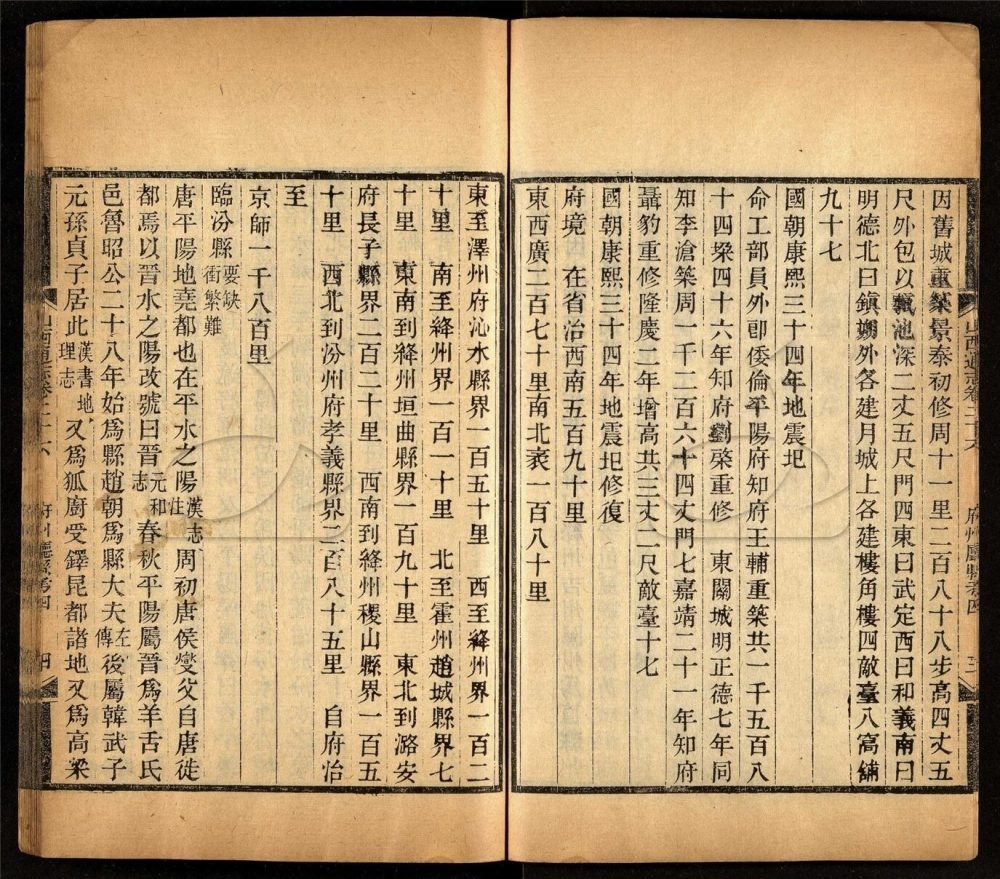 因舊城重築景泰初修周十一里二百八十八步高四丈五
尺外包以甎池深二丈五尺門四東曰武定西曰和義南曰
明德北曰鎮朔外各建月城上各建樓角樓四敵臺八窩鋪
九十七
國朝康熙三十四年地震圯
命工部員外郎倭倫平陽府知府王輔重築共一千五百八
十四垜四十六年知府劉棨重修　東關城明正德七年同
知李滄築周一千二百六十四丈門七嘉靖二十一年知府
聶豹重修隆慶二年增高共三丈二尺敵臺十七
國朝康熙三十四年地震圯修復
府境　在省治西南五百九十里
東西廣二百七十里南北袤一百八十里
山西通志卷二十六　府州廳縣考四　三
東至澤州府沁水縣界一百五十里　西至絳州界一百二
十里　南至絳州界一百一十里　北至霍州趙城縣界七
十里　東南到絳州垣曲縣界一百九十里　東北到潞安
府長子縣界二百二十里　西南到絳州稷山縣界一百五
十里　西北到汾州府孝義縣界二百八十五里　自府治
至
京師一千八百里
臨汾縣要缺衝繁難
唐平陽地堯都也在平水之陽漢志注周初唐侯燮父自唐徙
都焉以晉水之陽改號曰晉元和志春秋平陽屬晉爲羊舌氏
邑魯昭公二十八年始爲縣趙朝爲縣大夫左傳後屬韓武子
元孫貞子居此漢書地理志又爲狐廚受鐸昆都諸地又爲高梁
山西通志卷二十六　府州廳縣考四　四